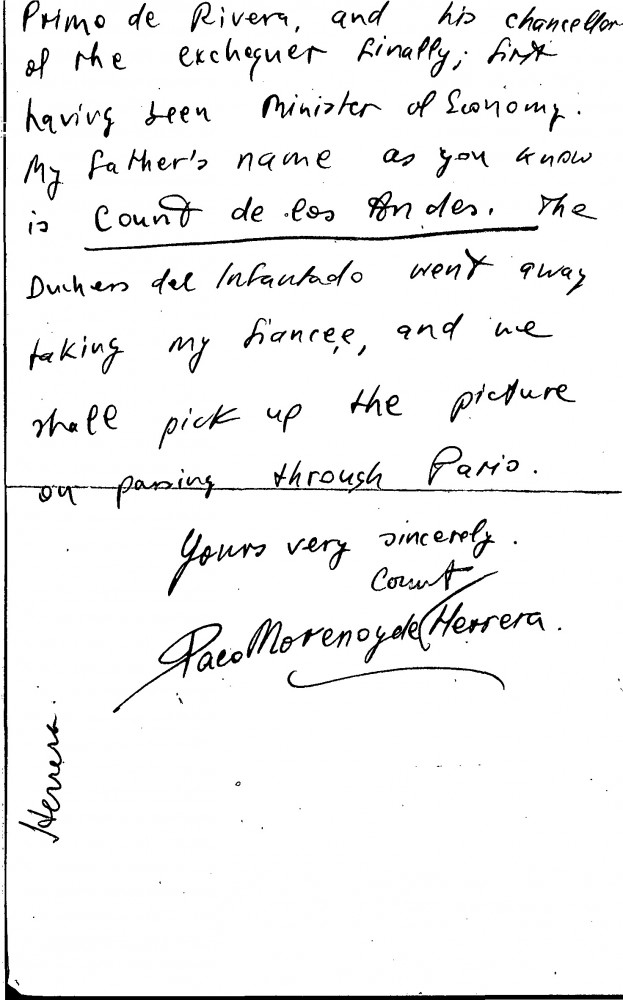 Primo de Rivera, and his chancellor
of the exchequer finally; first
having been Minister of Economy.
My father's name as you know
is Count de los Andes. The
Duchess del Infantado went away
taking my fiancee, and we
shall pick up the picture
on passing through Paris.
Yours very sincerely.
Count
Paco Moreno y de Herrera.
Herrera.